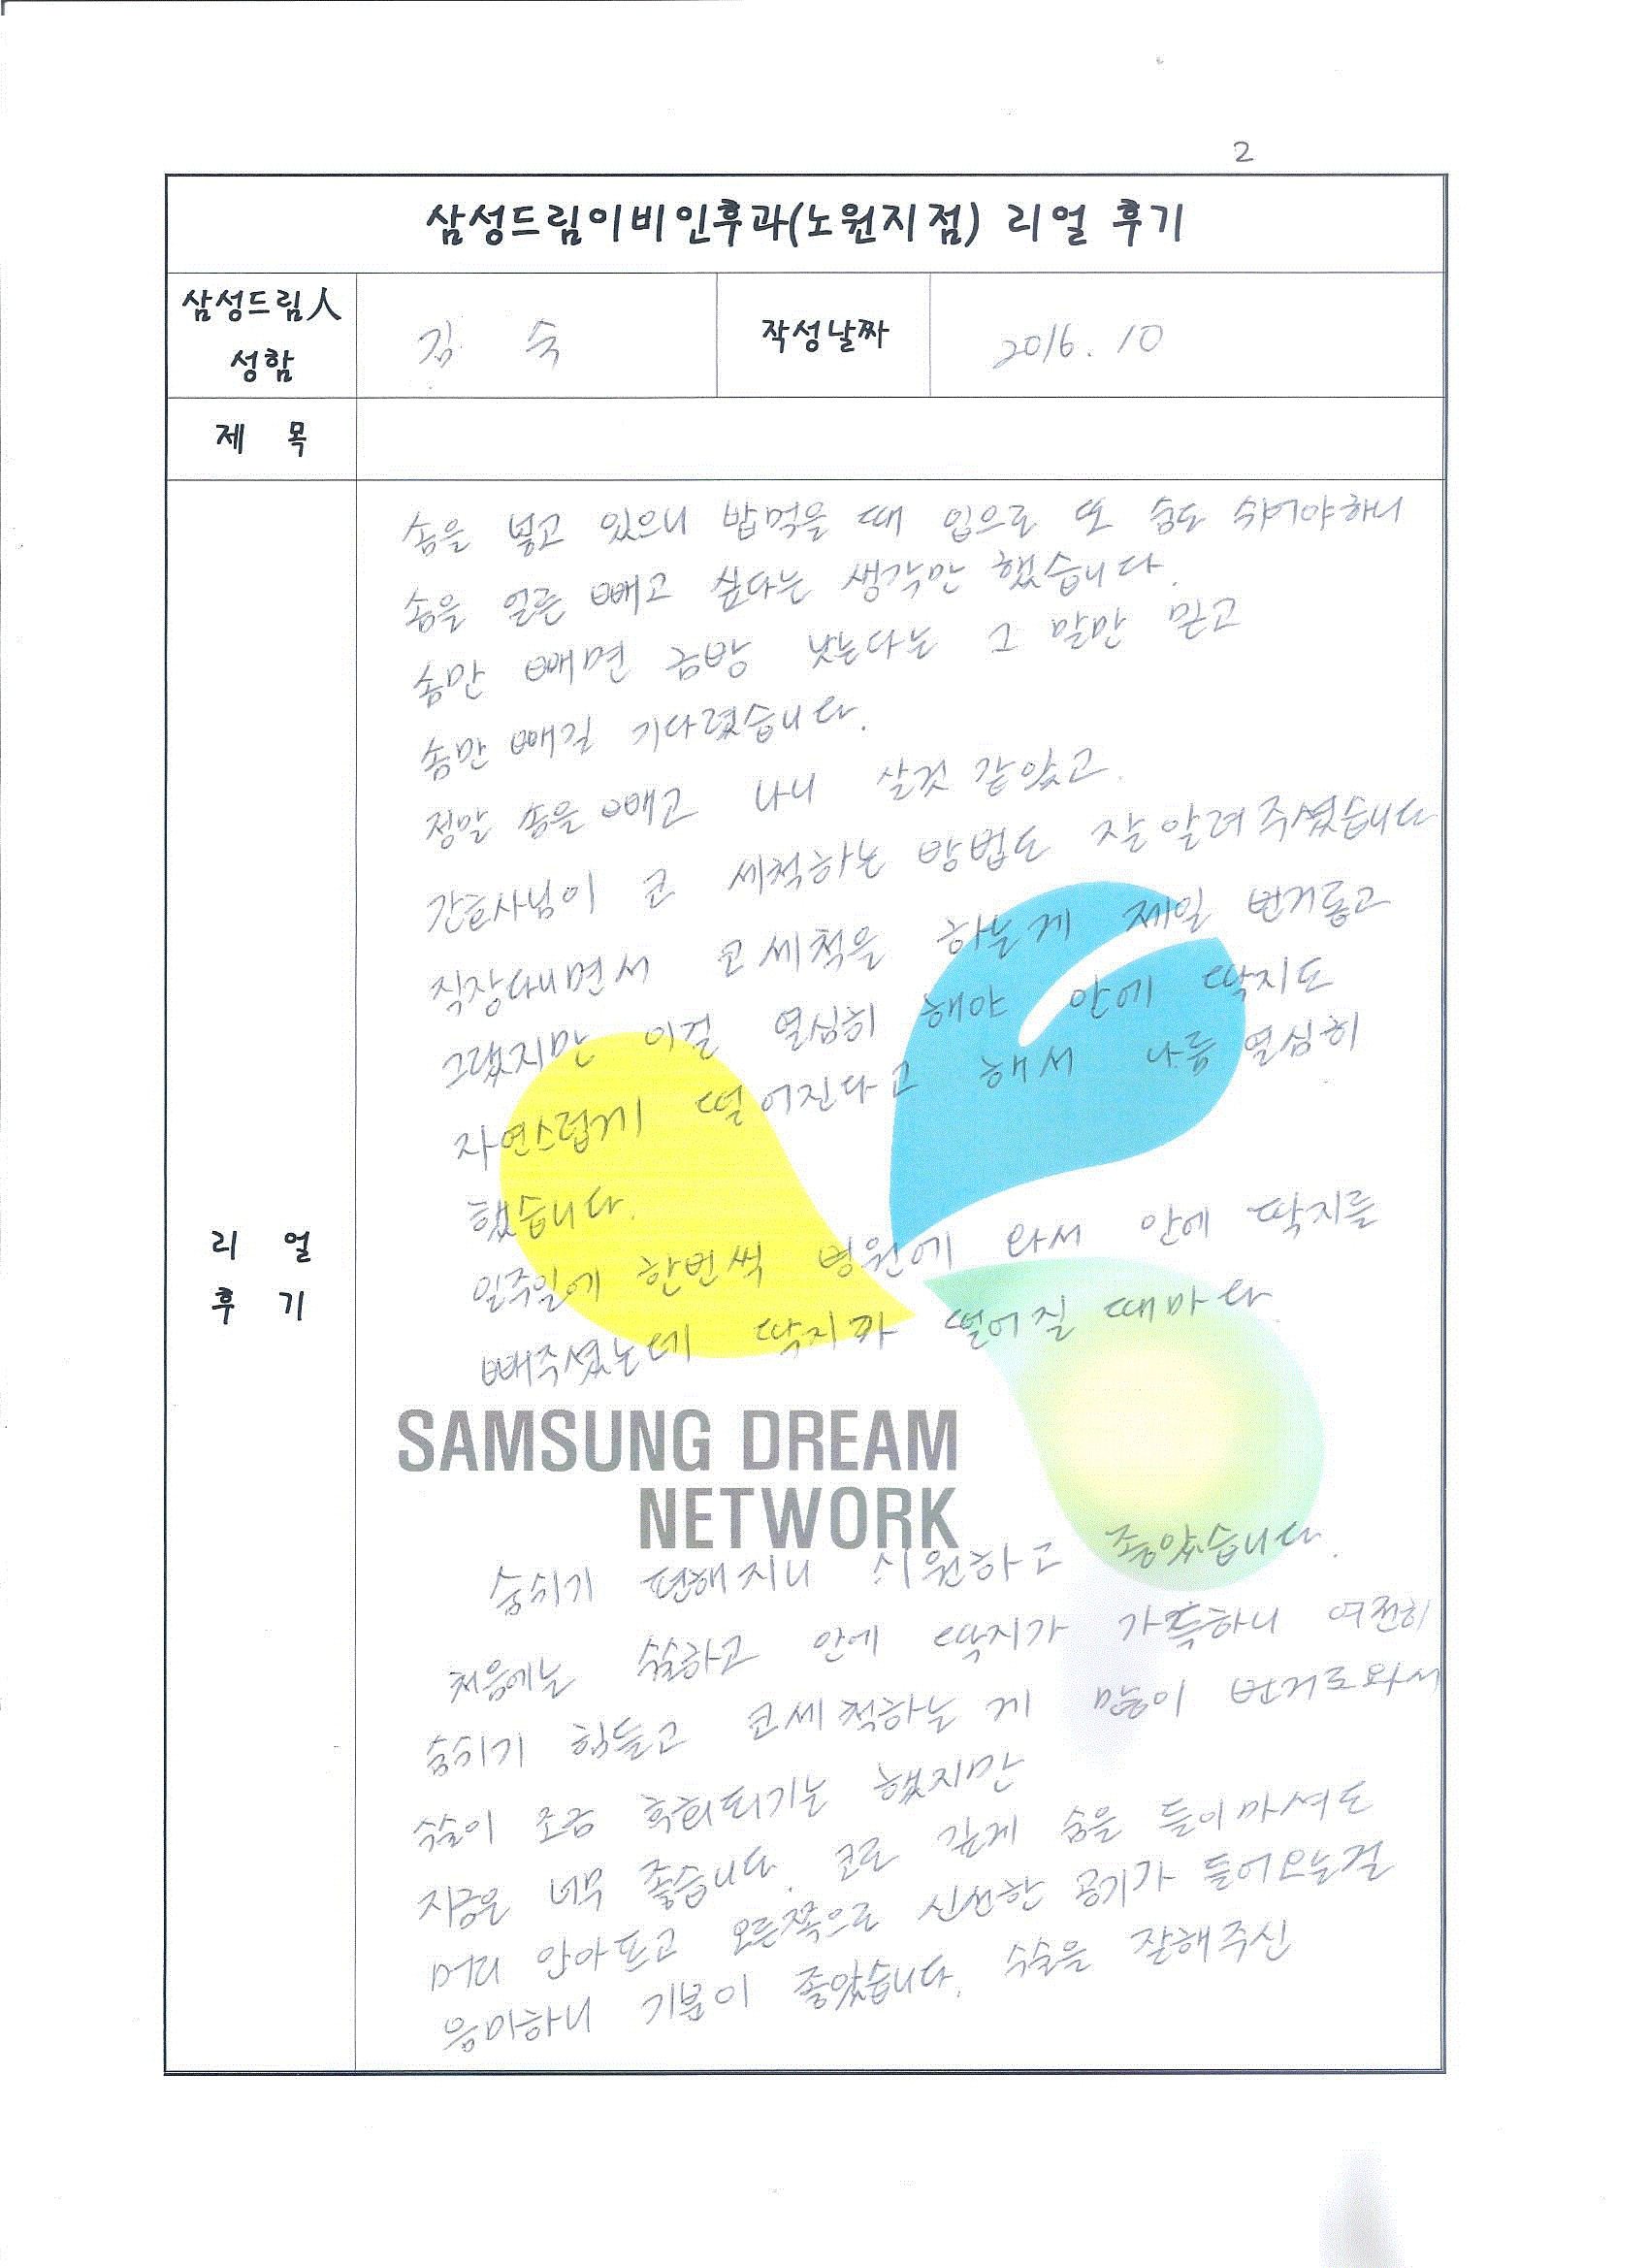 2
삼성드림이비인후과(노원지점) 리얼 후기
삼성드림人
성함
김 숙
작성날짜
2016. 10
제 목
솜을 넣고 있으니 밥먹을 때 입으로 또 숨도 쉬어야하니
솜을 얼른 빼고 싶다는 생각만 했습니다.
솜만 빼면 금방 낫는다는 그 말만 믿고
솜만 빼길 기다렸습니다.
정말 솜을 빼고 나니 살것 같았고.
간호사님이 코 세척하는 방법도 잘 알려주셨습니다
직장다니면서 코세척을 하는게 제일 번거롭고
그랬지만 이걸 열심히 해야 안에 딱지도
자연스럽게 떨어진다고 해서 나름 열심히
했습니다.
일주일에 한번씩 병원에 와서 안에 딱지를
빼주셨는데 딱지가 떨어질 때마다
SAMSUNG DREAM
NETWORK
숨쉬기 편해지니 시원하고 좋았습니다.
처음에는 수술하고 안에 딱지가 가득하니 여전히
숨쉬기 힘들고 코세척하는 게 많이 번거로와서
수술이 조금 후회되기는 했지만
지금은 너무 좋습니다. 코로 깊게 숨을 들이마셔도
머리 안아프고 오른쪽으로 신선한 공기가 들어오는걸
음미하니 기분이 좋았습니다. 수술을 잘해주신
리 얼
후 기